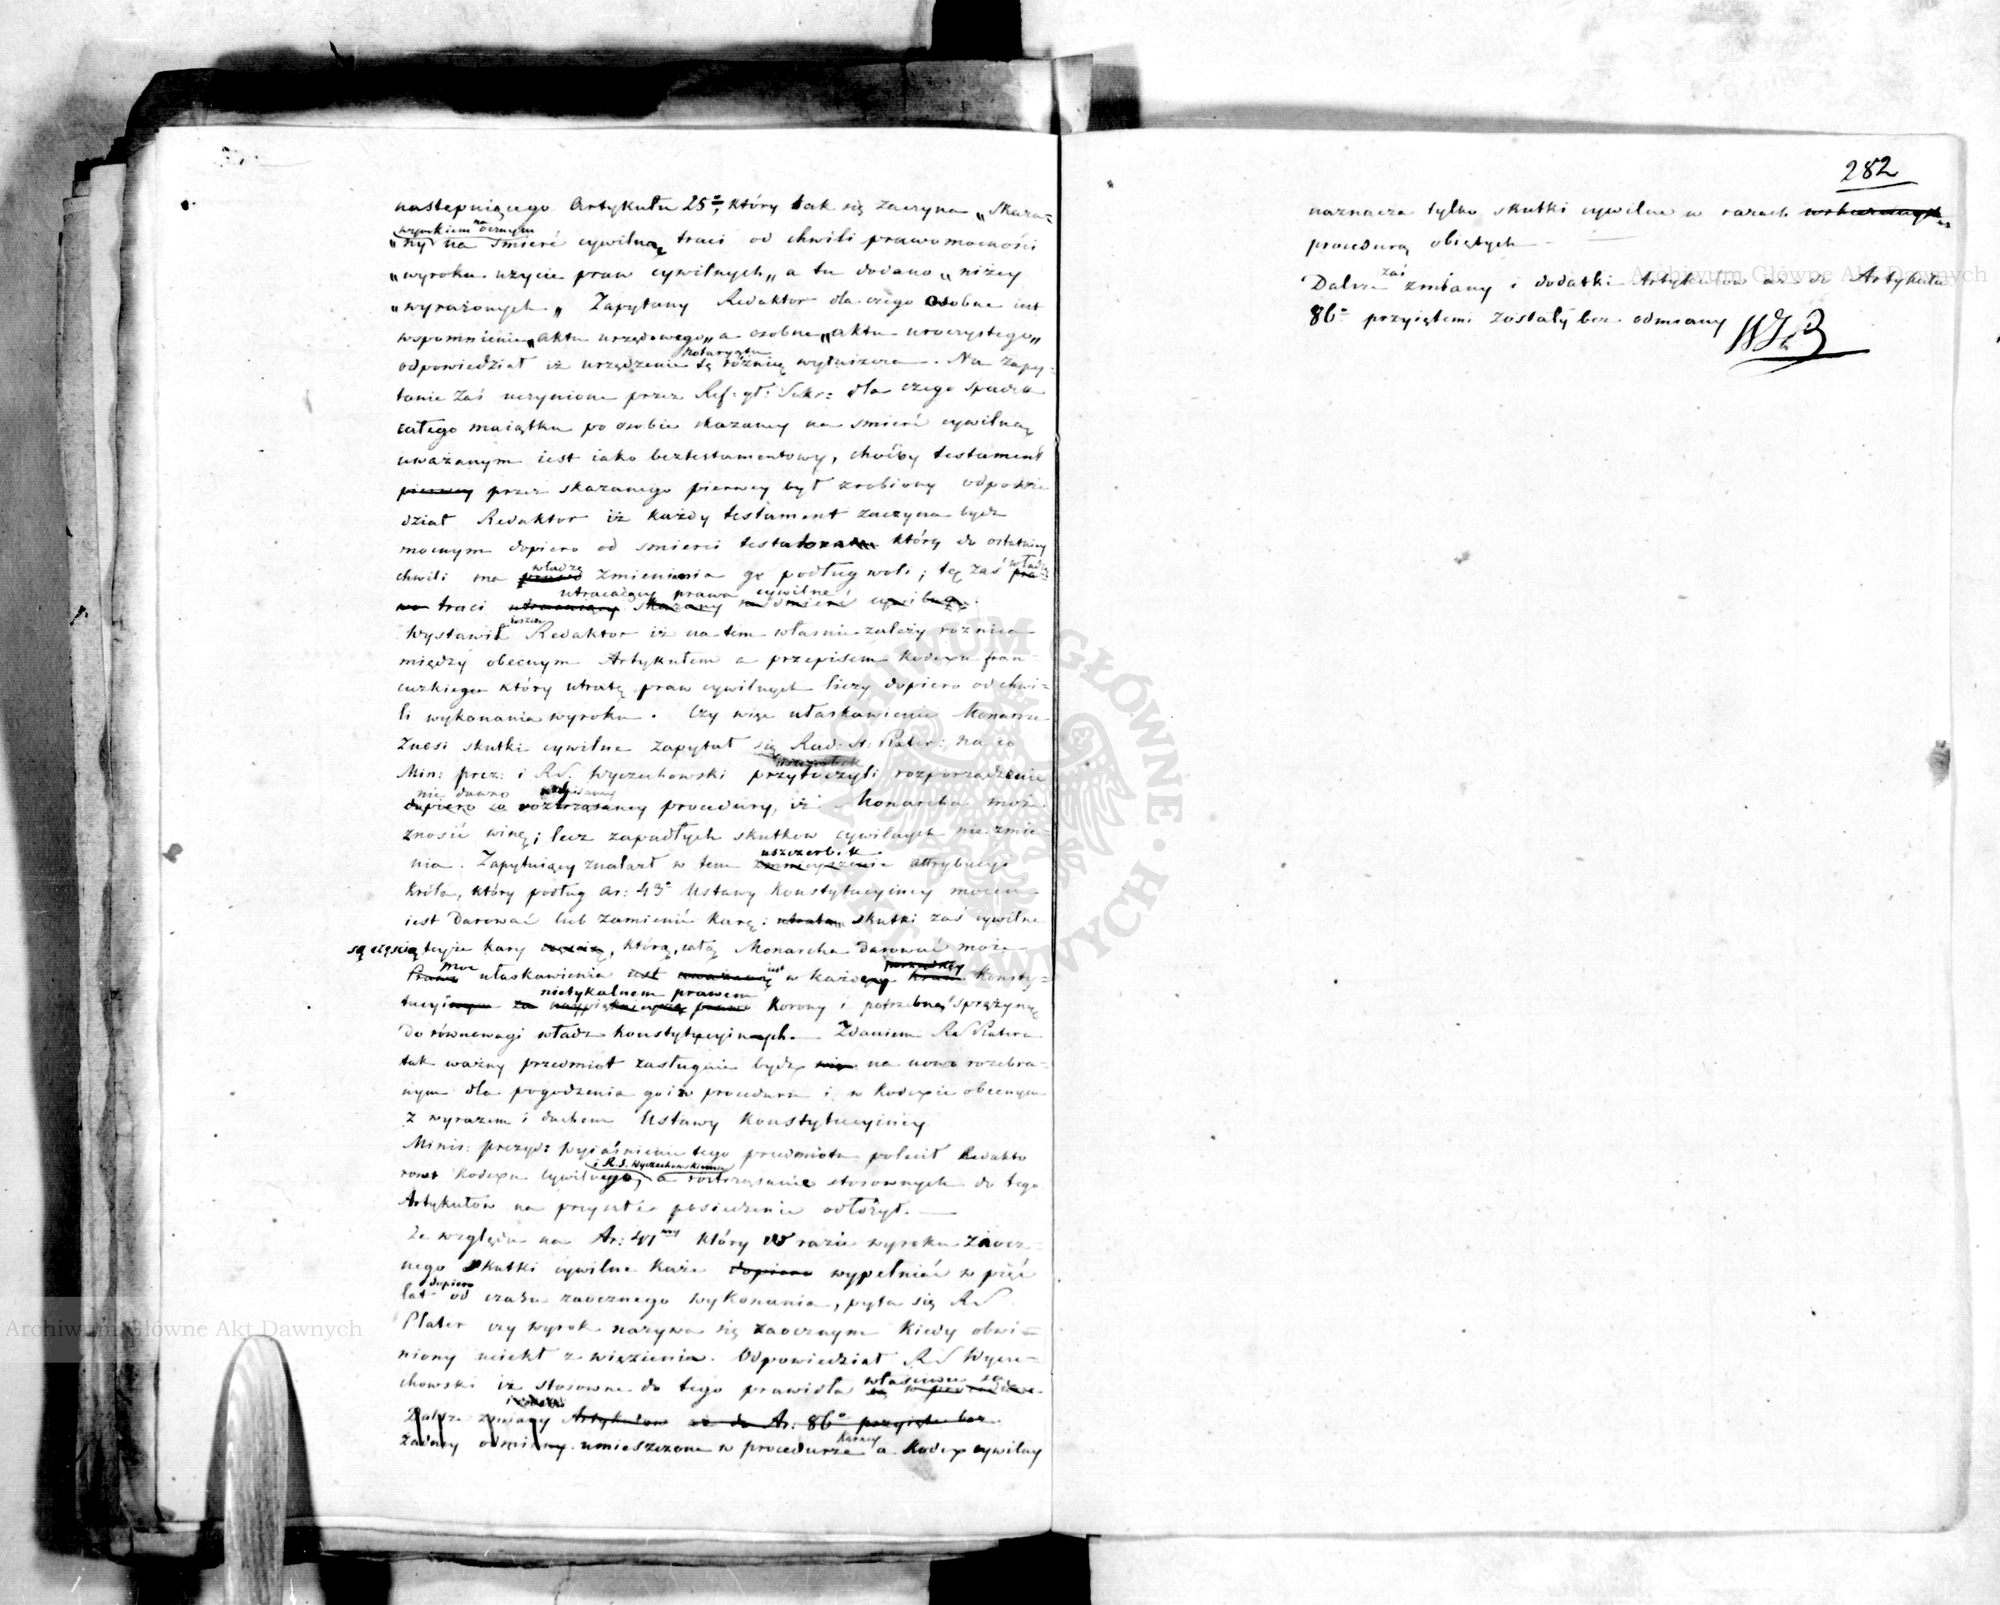 następuiącego Artykułu 25º, który tak się zaczyna „Skaza=
wyrokiem na ocznym
„ny na śmierć cywilną traci od chwili prawomocności
„wyroku użycie praw cywilnych„ a tu dodano „niżey
„wyrażonych„ Zapytany Redaktor dla czego osobne iest
wspomnienie „aktu urzędowego„ a osobne „aktu uroczystego„
notaryatu
odpowiedział iż urządzenie tę różnicę wyłuszcza. Na zapy-
tanie zaś uczynione przez Ref: gł: Sekr: dla czego spadek
całego maiątku po osobie skazaney na śmierć cywilną
uważanym iest iako beztestamentowy, choćby testament
pierwey przez skazanego pierwey był zrobiony odpowie
dział Redaktor iż każdy testament zaczyna bydź
mocnym dopiero od śmierci testatora który do ostatniey
władzę władzę
chwili ma prawo zmieniania go podług woli; tę zaś pra-
utracaiący prawa cywilne
wo traci utracaiący skazany na śmierć cywilną.
Wystawił Redaktor iż na tem własnie zależy różnica
między obecnym Artykułem a przepisem Kodexu fran=
cuzkiego który utratę praw cywilnych liczy dopiero od chwi=
li wykonania wyroku. Czy więc ułaskawienie Monarsze
znosi skutki cywilne zapytał się Rad: St: Plater: na co
Min: prez: i RS. Wyczechowski przytoczyli rozporządzenie
nie dawno
dopiero co roztrząsaney procedury, iż Monarcha może
znosić winę; lecz zapadłych skutków cywilnych nie zmie-
uszczerbek
nia. Zapytuiący znalazł w tem zmnieyszenie attrybucyi
Króla, który podług Ar: 43º Ustawy Konstytucyiney mocen
iest darować lub zamienić karę: utrata skutki zaś cywilne
są częścią teyże kary częścią, którą całą Monarcha darować może
moc iest
Prawo ułaskawienia iest uważane w każdey kraiu Konsty-
nietykalnem prawem
tucyinym za naypięknieysze prawo Korony i potrzebną sprężyną
do równowagi władz konstytucyinych. Zdaniem RS Platera
tak ważny przedmiot zasługuie bydź więc na nowo rozebra-
nym dla pogodzenia go i w procedurze i w Kodexie obecnym
z wyrazem i duchem Ustawy Konstytucyiney
Minis: prezyd: wyiaśnienie tego przedmiotu polecił Redakto
i R.S. Wyczechowskiemu
rowi Kodexu cywilnego, a roztrząsanie stosownych do tego
Artykułów na przyszłe posiedzenie odłożył. —
Ze względu na Ar: 41wszy który w razie wyroku zaocz=
nego skutki cywilne każe dopiero wypełniać w pięć
dopiero
lat od czasu zaocznego wykonania, pyta się RS
Plater czy wyrok nazywa się zaocznym kiedy obwi=
niony uciekł z więzienia. Odpowiedział RS Wycze=
właściwie są
chowski iż stosowne do tego prawidła są w procedurze.
Dalsze zmiany Artykułów aż do Ar: 86º przyięte bez
karney
żadney odmiany. umieszczone w procedurze a Kodex cywilny
282
naznacza tylko skutki cywilne w razach
procedurą obiętych —
zaś
Dalsze zmiany i dodatki Artykułów aż do Artykułu
86º przyiętemi zostały bez odmiany
Archiwum Główne Akt Dawnych
Archiwum Główne Akt Dawnych
ARCHIWUM GŁÓWNE AKT DAWNYCH